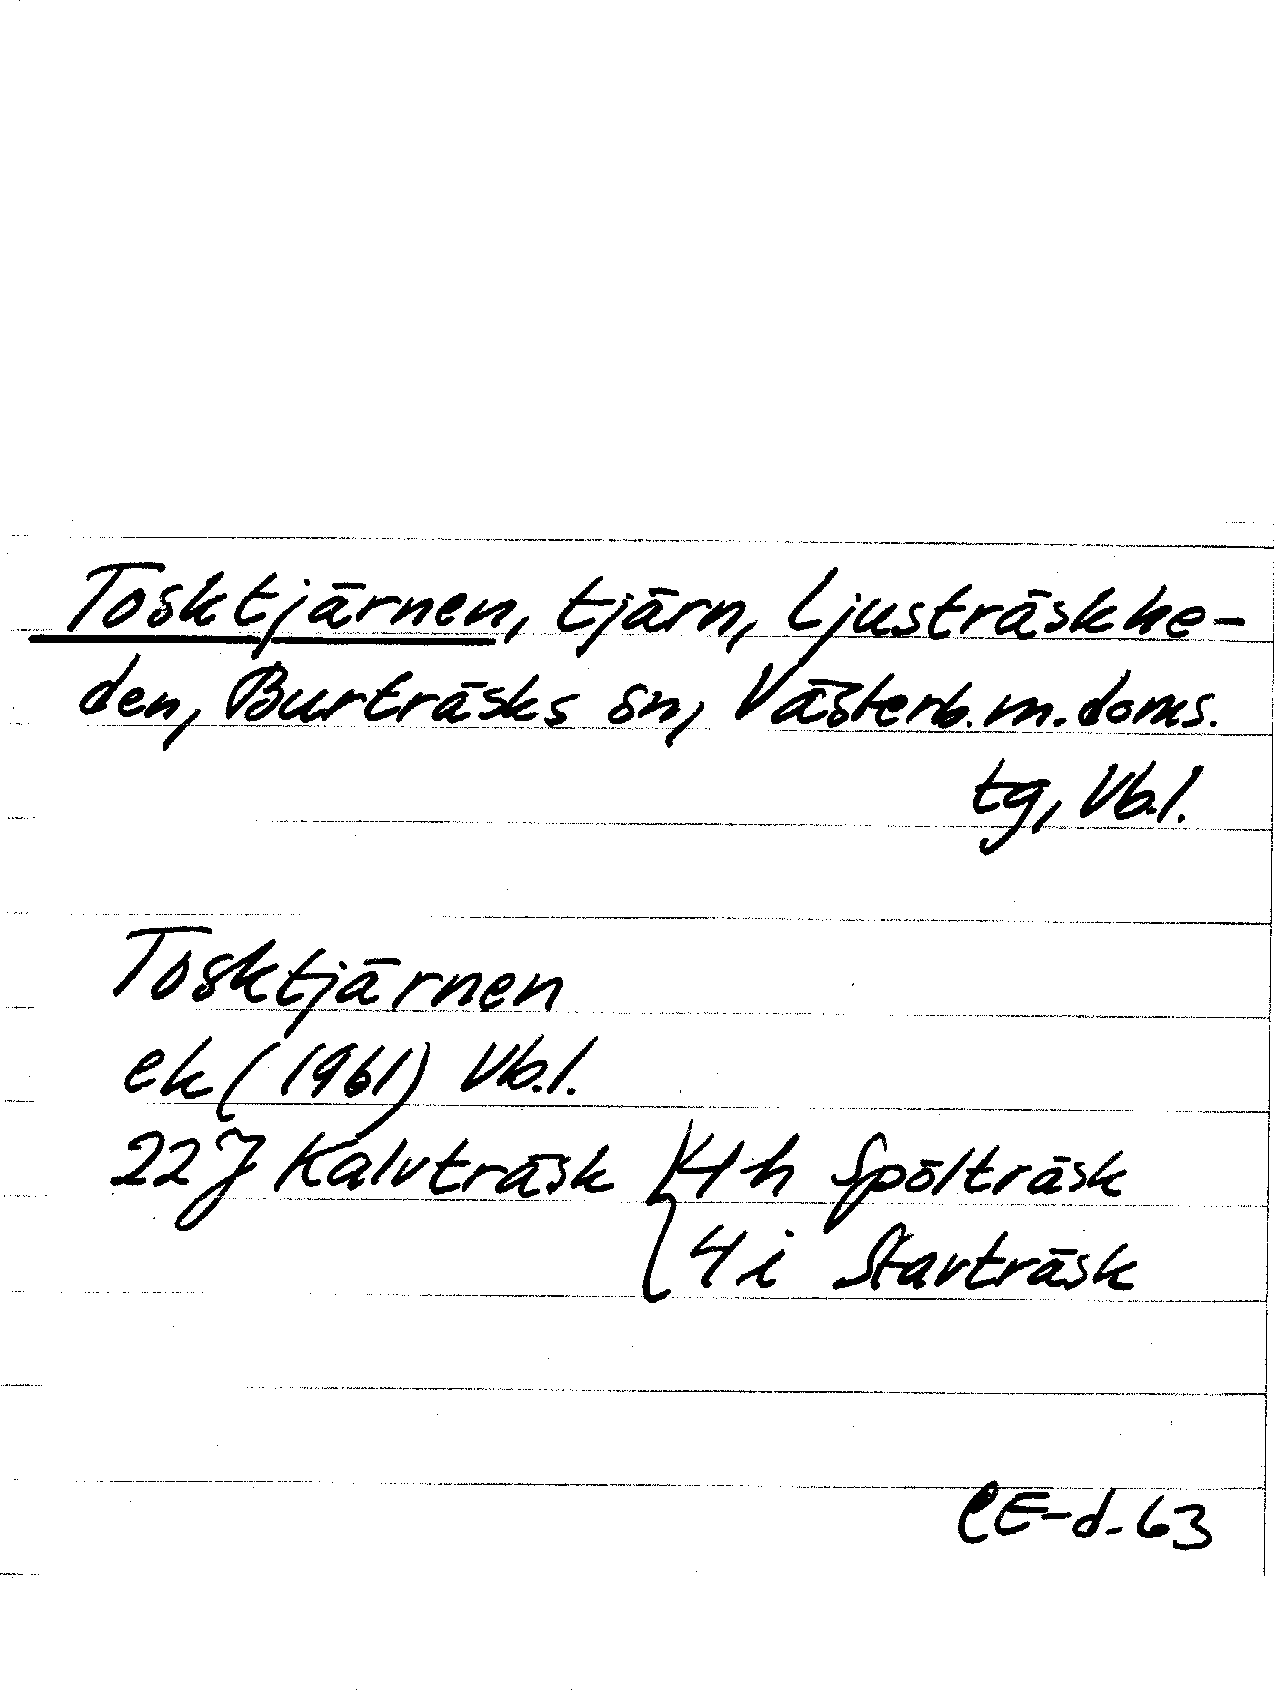 Tosktjärnen, tjärn, Ljusträskhe-
den, Burträsks sn, Västerb. m. doms.
tg, Vb.l.
Tosktjärnen
ek (1961) Vb.l.
22J Kalvträsk { 4h Spölträsk
4i Starträsk
CE-d. 63